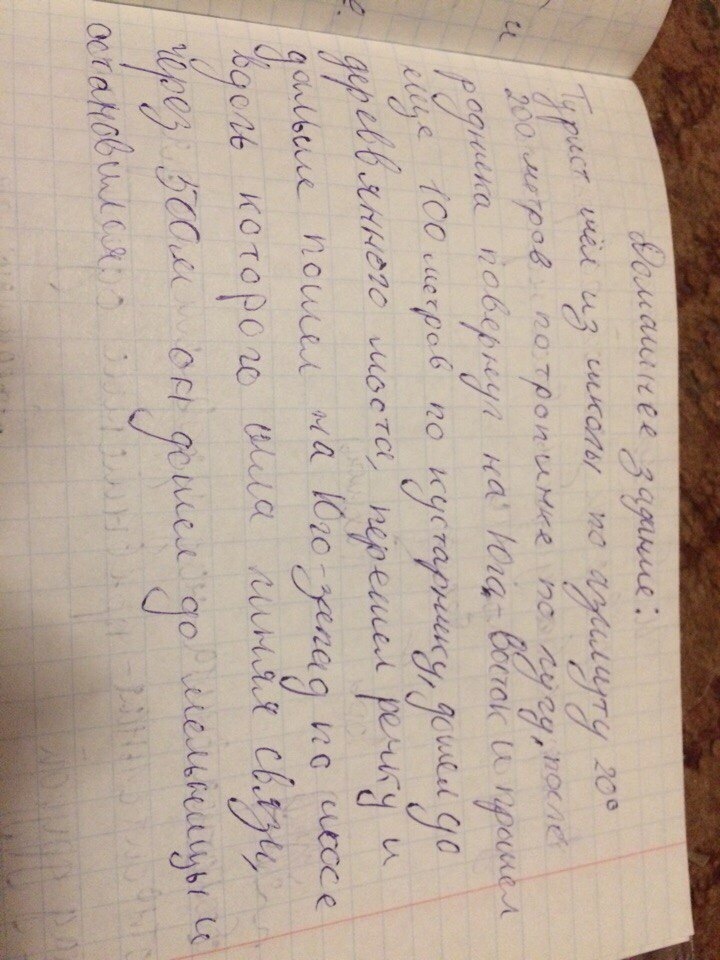 Домашнее задание:
Турист шёл из школы по азимуту 20°
200 метров по тропинке по лугу, после
родника повернул на Юга-Восток и прошел
еще 100 метров по кустарнику, дошел до
дереввянного моста, перешел речку и
дальше пошел на Юго-запад по шоссе
вдоль которого шла линяя связи,
через 500м он дошел до мельницы и
остановился
и
е.